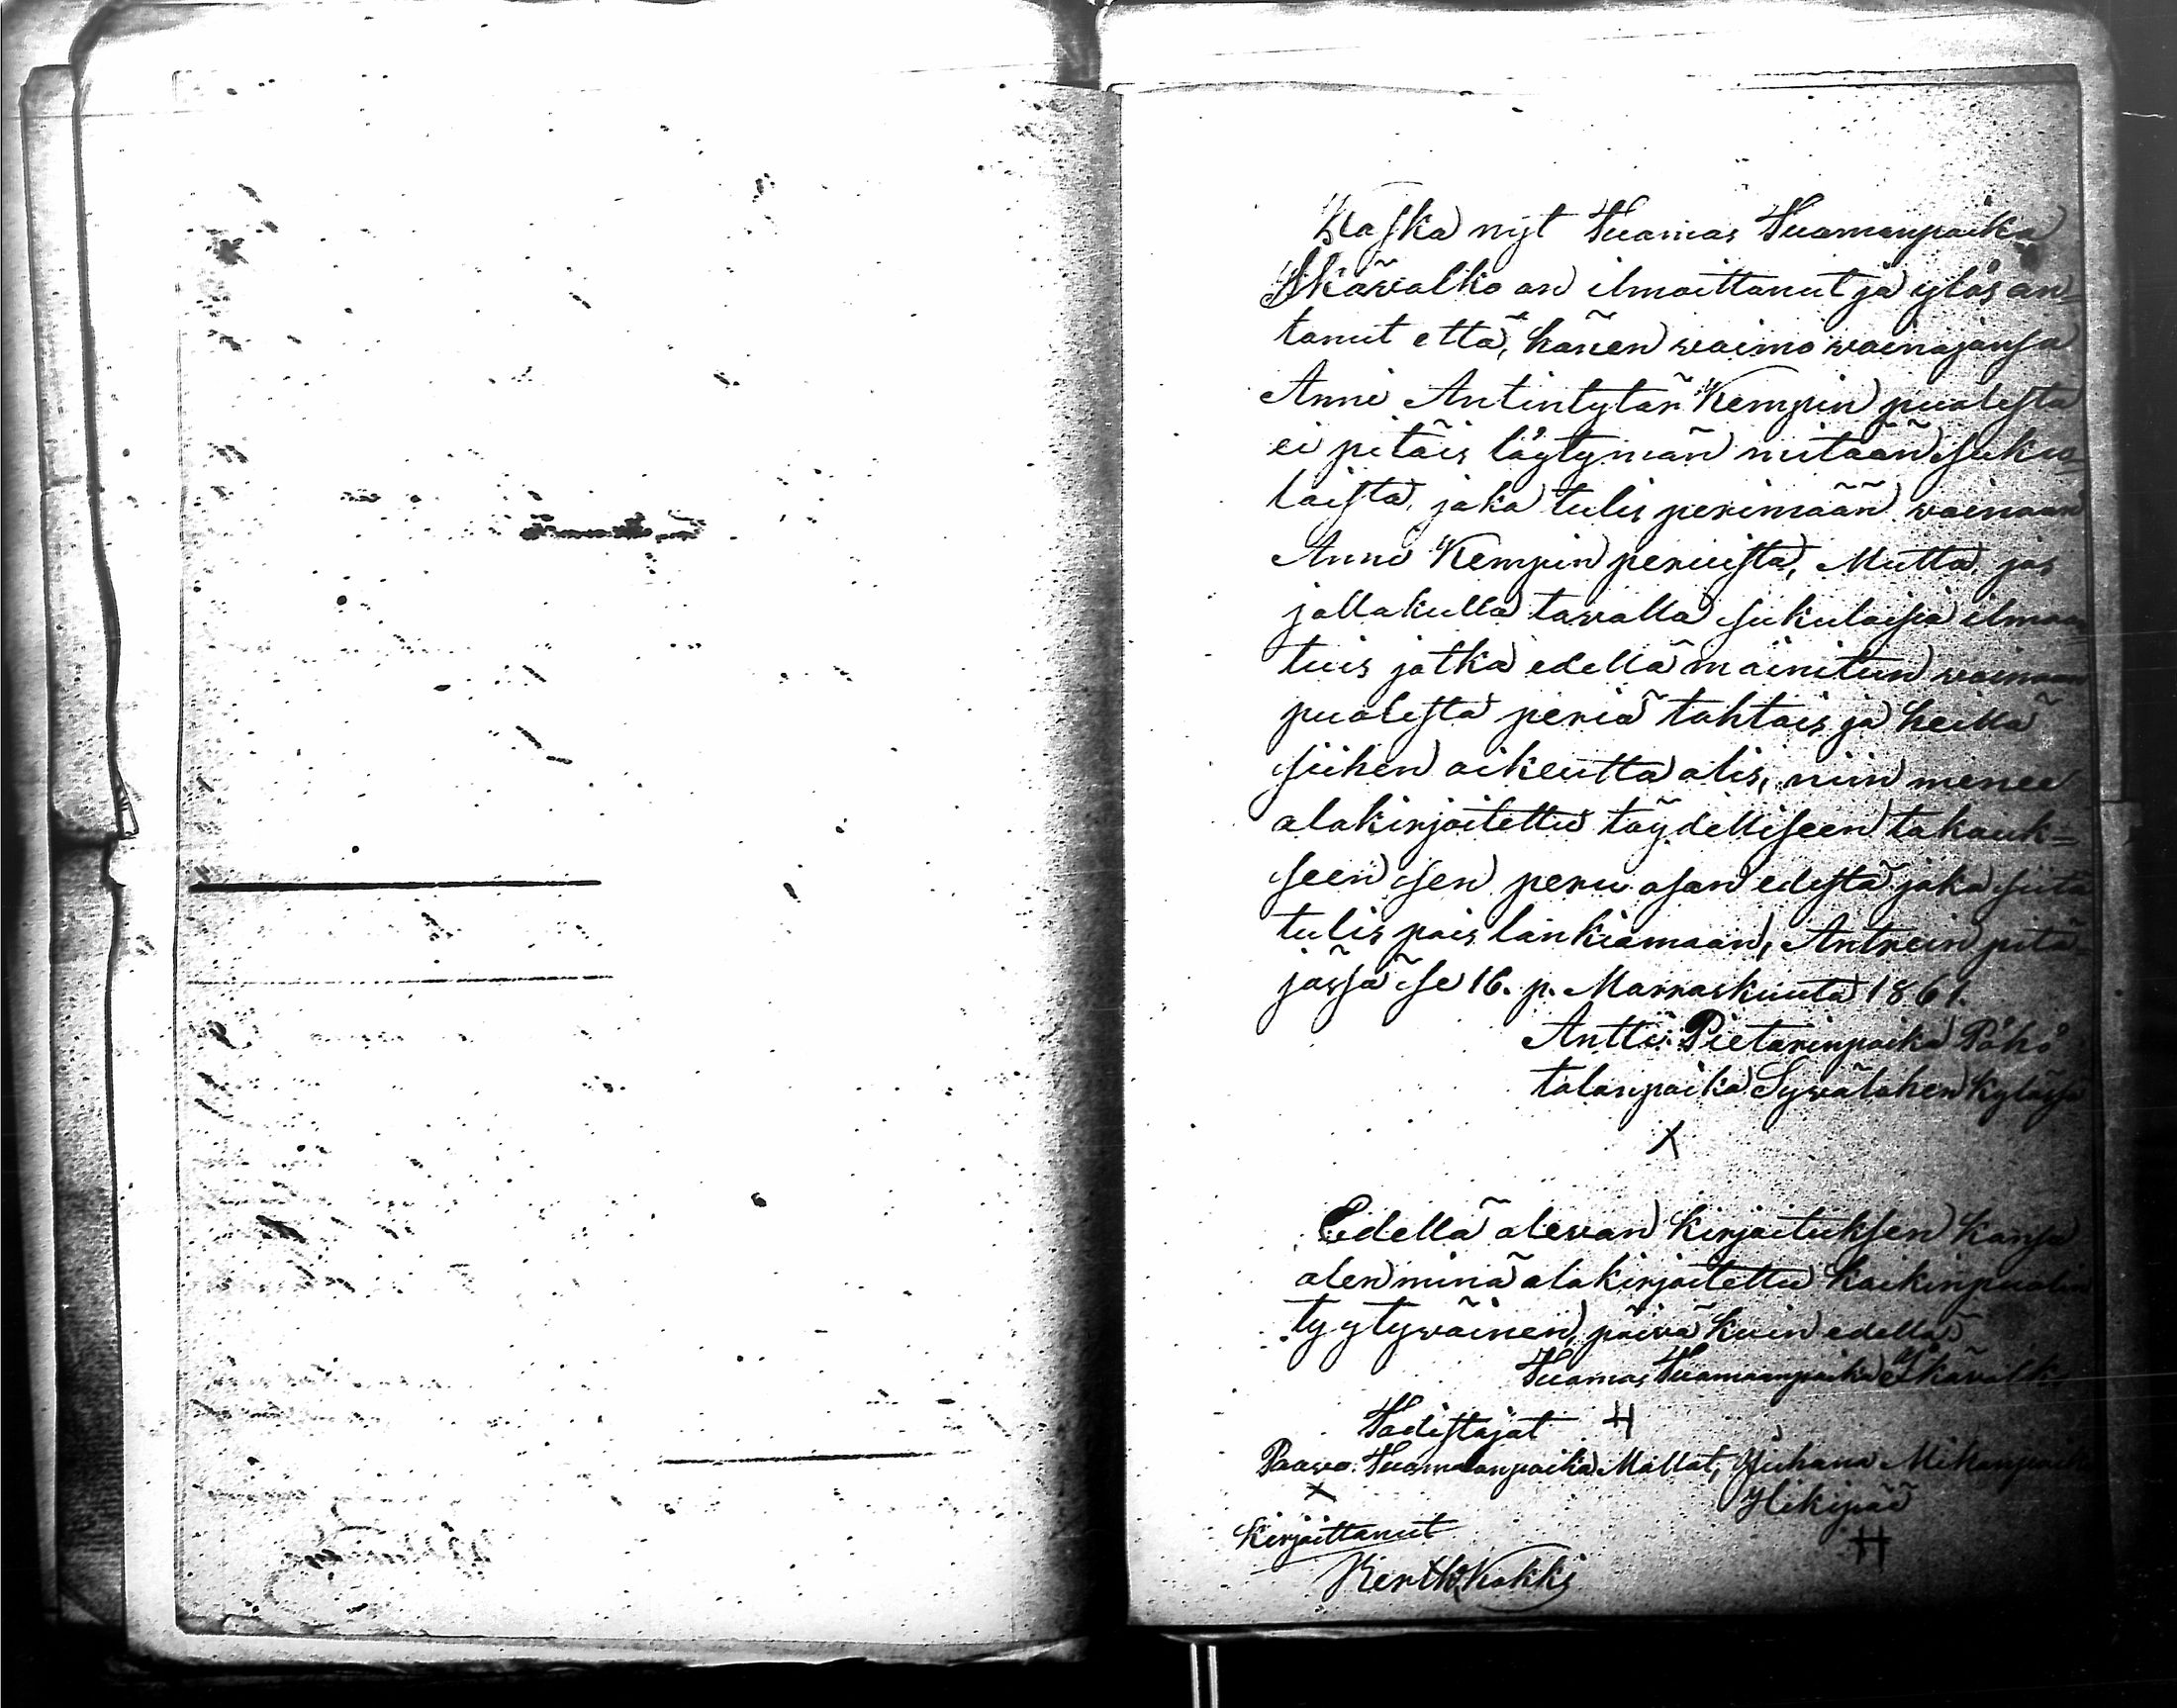 Koska nyt Tuomas Tuomanpoika
Ikävalko on ilmoittanut ja ylös an=
tanut että, hänen waimo wainajansa
Anni Antintytär Kempin puolesta
ei pitäis löytymän mitään suku=
laista, joka tulis perimään wainaan
Anni Kempin peruista, Mutta, jos
jollakulla tawalla sukulaisia ilmaan
tuis jotka edellä mainitun wainaan
puolesta periä tahtois ja heillä
siihen oikeutta olis, niin menee
alakirjoitettu täydelliseen takauk=
seen sen peru osan edestä joka siitä
tulis pois lankiamaan, Antrein pitä=
jässä se 16. p. Marraskuuta 1861.
Antti Pietarinpoika Pöhö
talonpoika Sywälahen kylässä
X
Edellä olewan kirjoituksen kansa
olen minä alakirjoitettu kaikinpuolin
tyytywäinen, päiwä kuin edellä
Tuomas Tuomaanpoika Ikävalko
Todistajat H
Paavo Tuomaanpoika Mällat, Juhana Mikonpoika
X Hikipää
Kirjoittanut H
Kertt Kokki